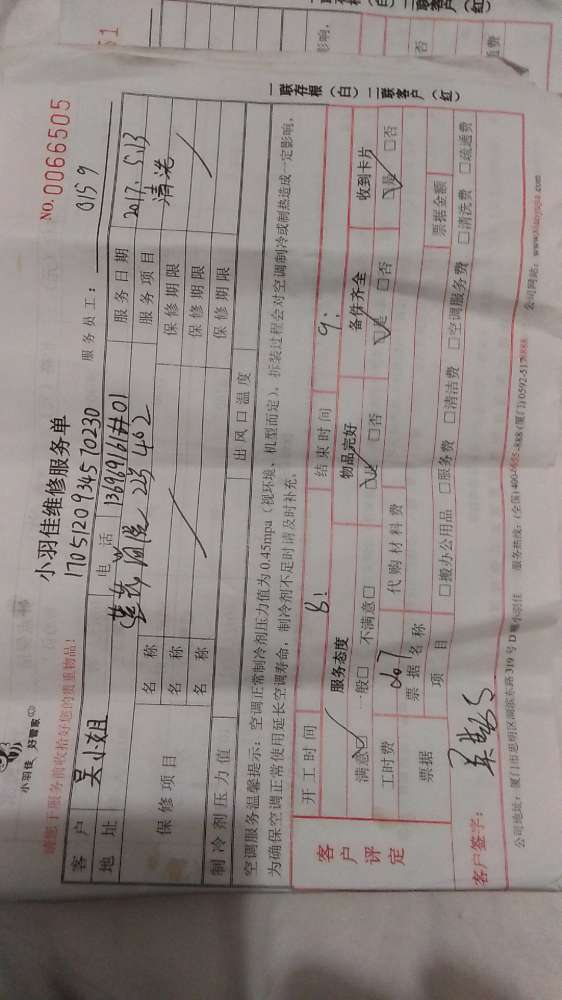 小羽佳 好管家
请您于服务前收拾好您的贵重物品!
小羽佳维修服务单
No. 0066505
1705120934570230
服务员工: 0159
客户 吴小姐 电话 13696961#01
地址 2号402 服务日期 2017.5.13
保修项目 名称 服务项目 清洗
名称 保修期限
名称 保修期限
保修期限
制冷剂压力值 出风口温度
空调服务温馨提示: 空调正常制冷剂压力值为0.45mpa(视环境、机型而定), 拆装过程会对空调制冷或制热造成一定影响,
为确保空调正常使用延长空调寿命, 制冷剂不足时请及时补充。
一联存根(白) 二联客户(红)
客户评定
开工时间 8: 结束时间 9:
服务态度 物品完好 备件齐全 收到卡片
满意☑ 一般□ 不满意□ ☑是 □否 ☑是 □否 ☑是 □否
工时费 代购材料费
票据 票据名称 票据金额
项目 □搬办公用品 □服务费 □清洁费 □空调服务费 □清洗费 □疏通费
客户签字:
公司地址: 厦门市思明区湖滨东路319号D 小羽佳 服务热线: (全国)400 888 (厦门)0592-517 888 公司网站: www. .com
影响,
否
一联存根(白) 二联客户(红)